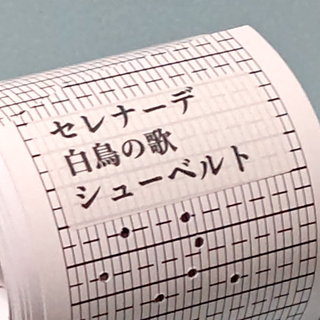 セレナーデ
白鳥の歌
シューベルト